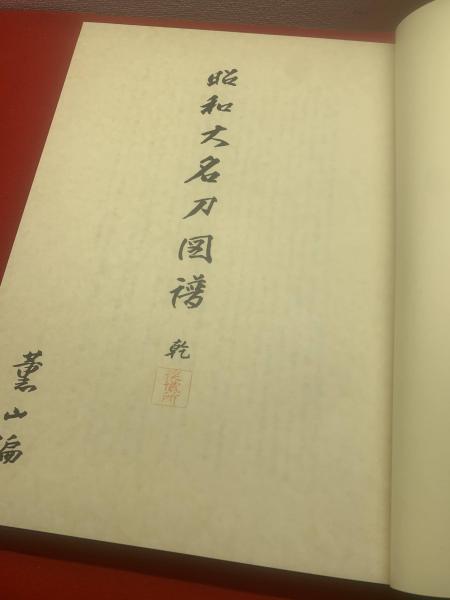 昭和大名刀図譜 乾
薰山編